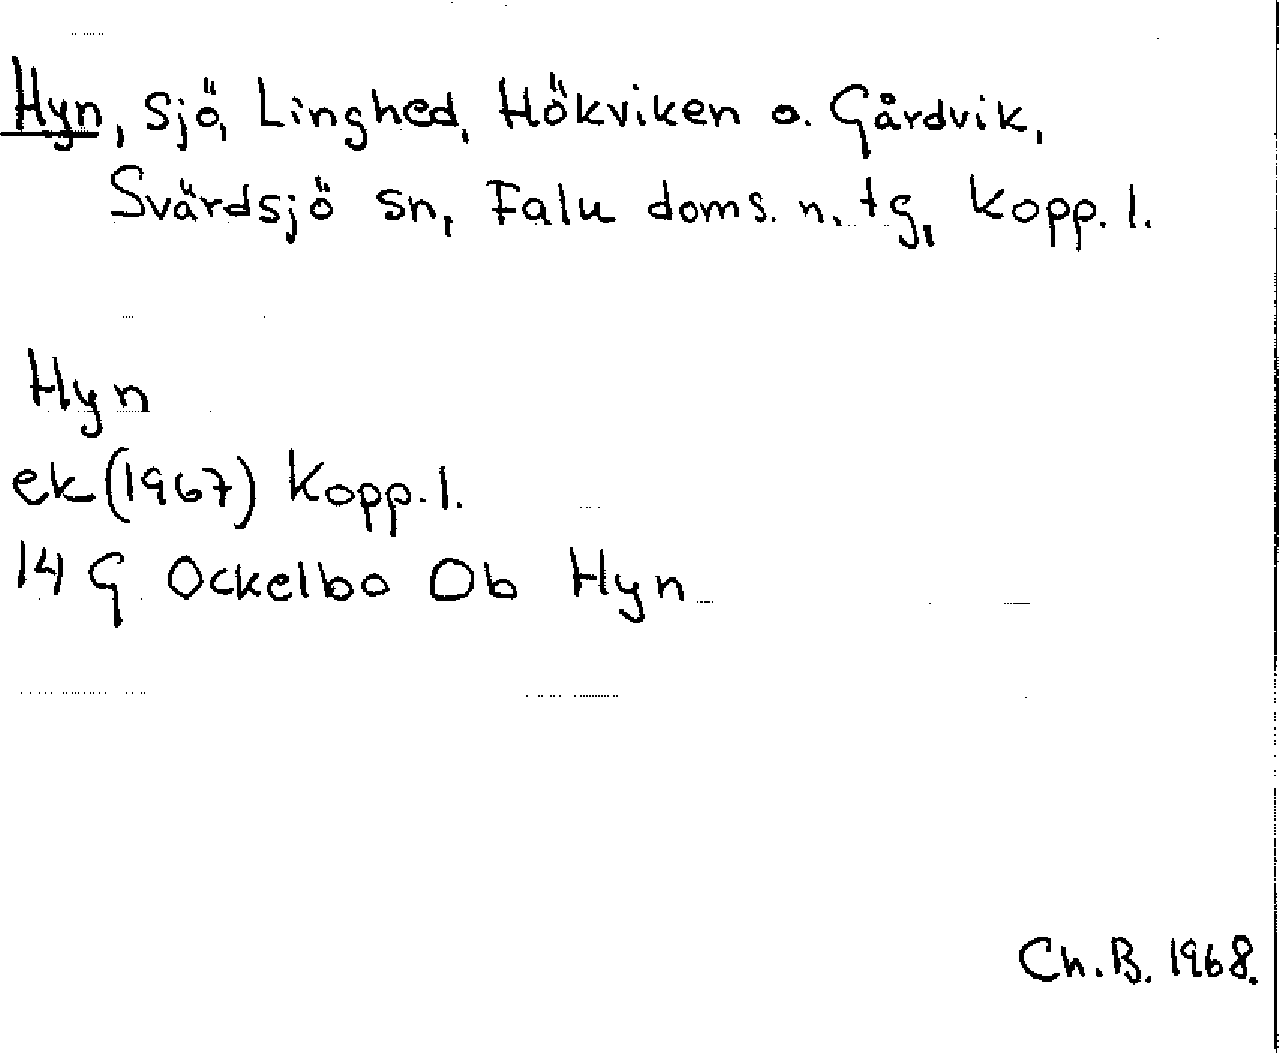 Hyn, sjö, Linghed, Hökviken o. Gårdvik,
Svärdsjö sn, Falu doms. n. tg, Kopp. l.
Hyn
ek (1967) Kopp. l.
14 G Ockelbo Ob Hyn
Ch. B. 1968.